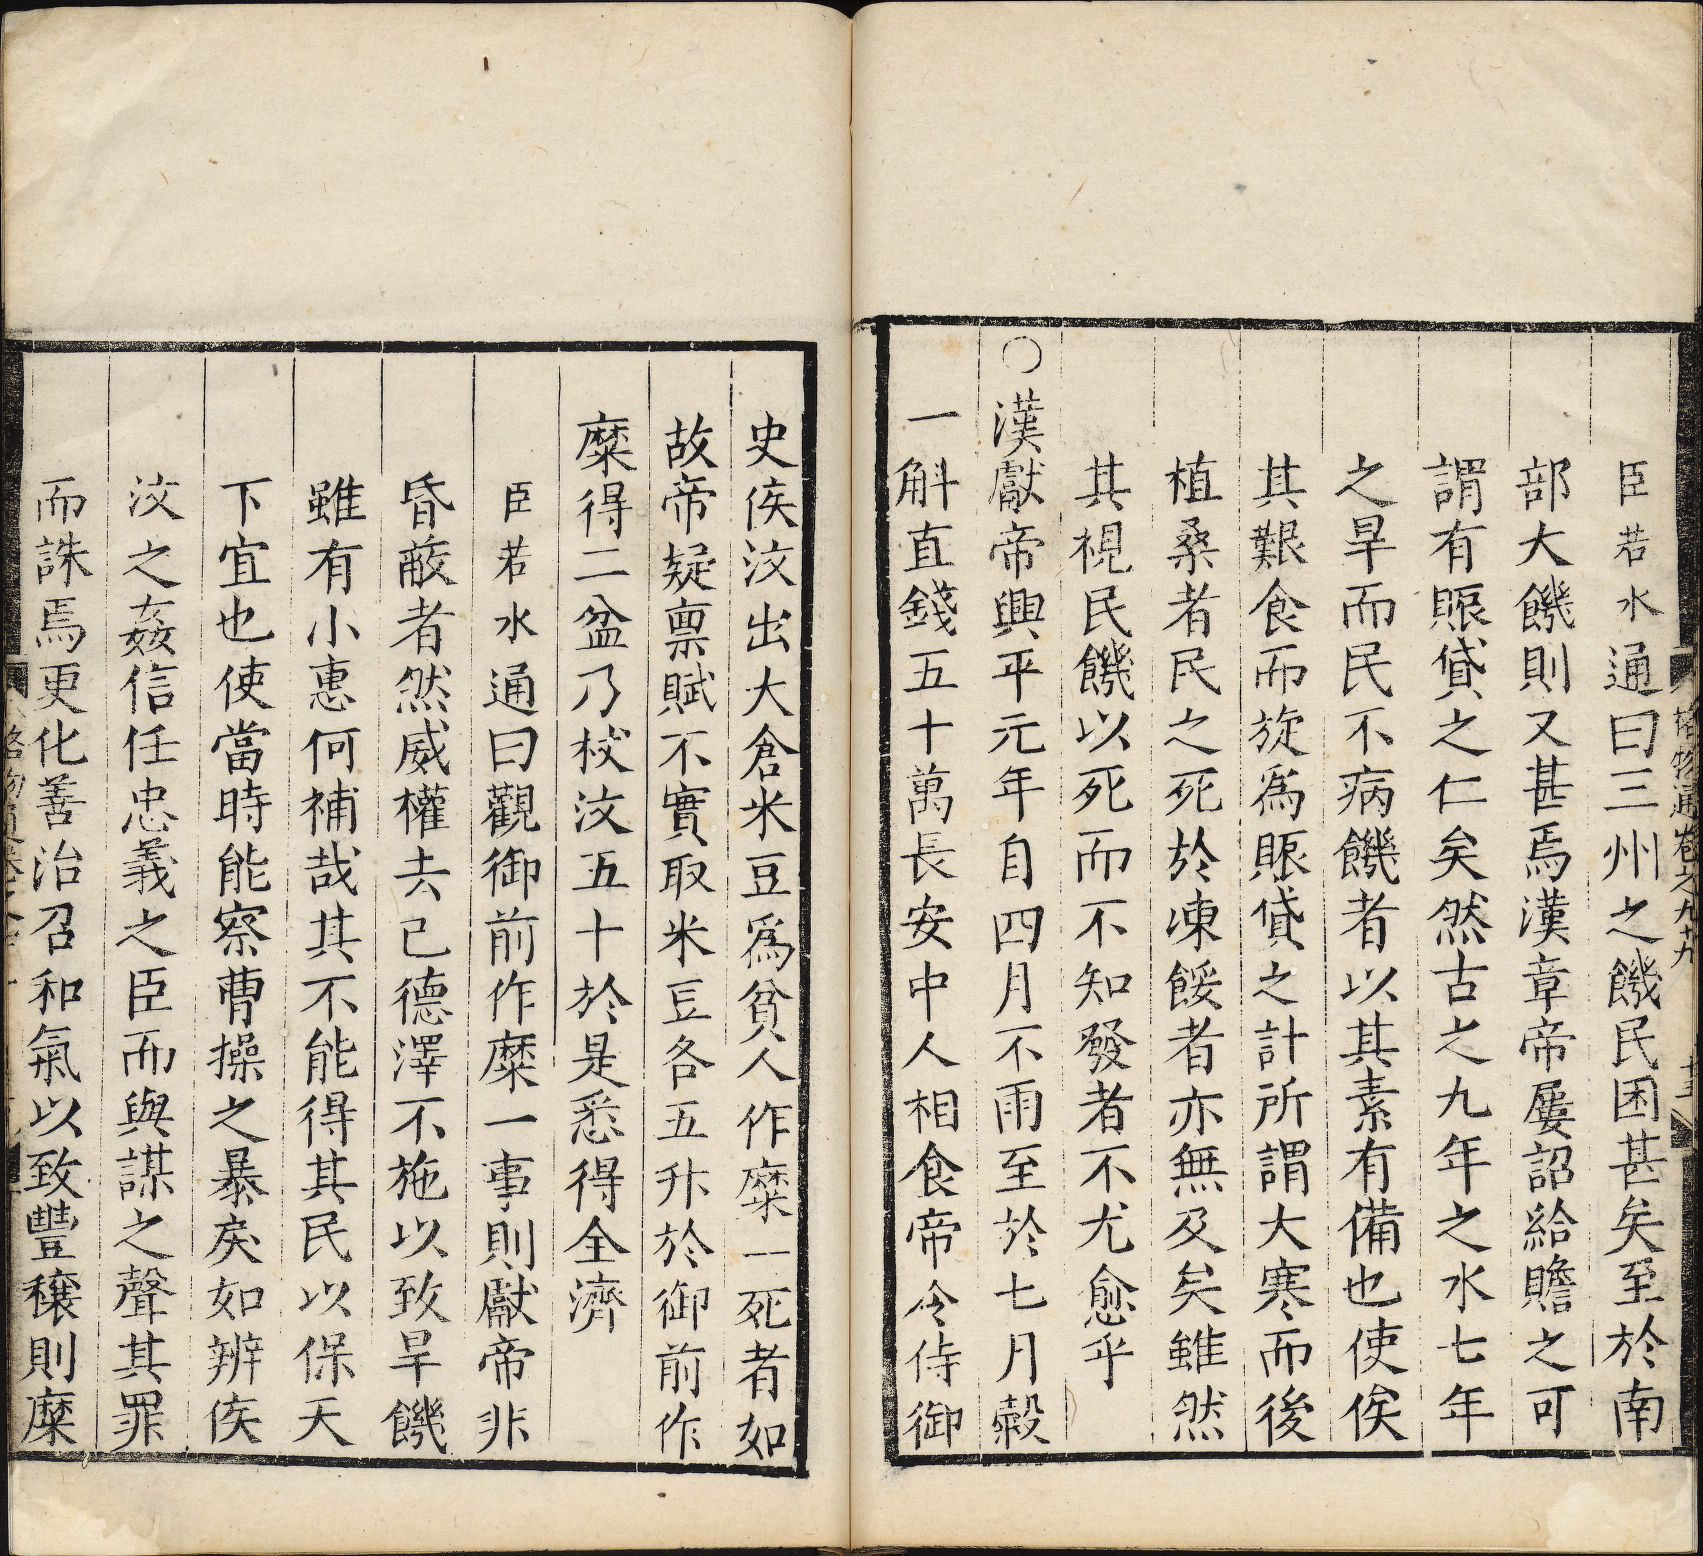 臣若水通曰三州之饑民困甚矣至於南
部大饑則又甚焉漢章帝屢詔給贍之可
謂有賑貸之仁矣然古之九年之水七年
之旱而民不病饑者以其素有備也使俟
其艱食而旋爲賑貸之計所謂大寒而後
植桑者民之死於凍餒者亦無及矣雖然
其視民饑以死而不知發者不尤愈乎
○漢獻帝興平元年自四月不雨至於七月穀
一斛直錢五十萬長安中人相食帝令侍御
史侯汶出大倉米豆爲貧人作糜一死者如
故帝疑禀賦不實取米豆各五升於御前作
糜得二盆乃杖汶五十於是悉得全濟
臣若水通曰觀御前作糜一事則獻帝非
昏蔽者然威權去已德澤不施以致旱饑
雖有小惠何補哉其不能得其民以保天
下宜也使當時能察曹操之暴戾如辨侯
汶之姦信任忠義之臣而與謀之聲其罪
而誅焉更化善治召和氣以致豐穰則糜
格物通卷之九十九
十三